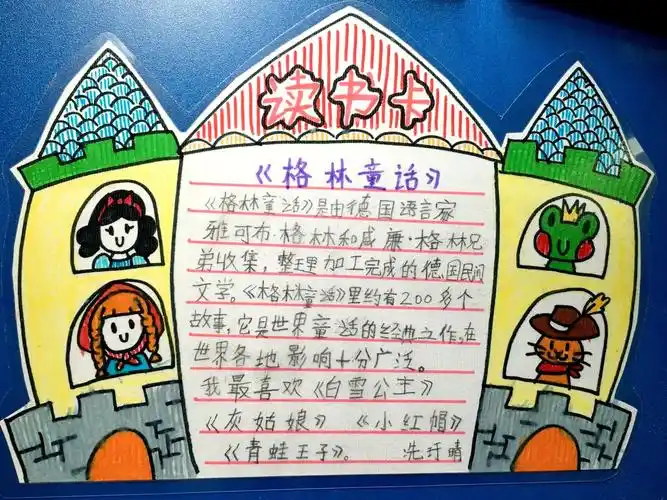 读书卡
《格林童话》
《格林童话》是由德国语言家
雅可布·格林和威廉·格林兄
弟收集，整理加工完成的德国民间
文学。《格林童话》里约有200多个
故事，它是世界童话的经典之作，在
世界各地影响十分广泛。
我最喜欢《白雪公主》
《灰姑娘》 《小红帽》
《青蛙王子》。 冼玗晴